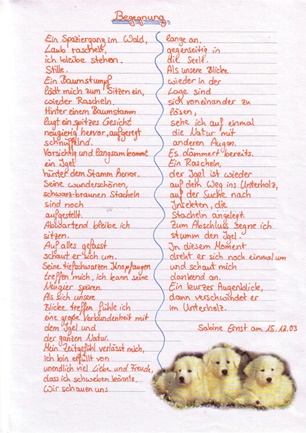 Begegnung
Ein Spaziergang im Wald,
Laub raschelt,
ich bleibe stehen.
Stille.
Ein Baumstumpf
lädt mich zum Sitzen ein,
wieder Rascheln.
Hinter einem Baumstamm
lugt ein spitzes Gesicht
neugierig hervor, aufgeregt
schnüffelnd.
Vorsichtig und langsam kommt
ein Igel
hinter dem Stamm hervor.
Seine wunderschönen,
schwarz-braunen Stacheln
sind noch
aufgestellt.
Abwartend bleibe ich
sitzen.
Auf alles gefasst
schaut er sich um.
Seine tiefschwarzen Knopfaugen
treffen mich, ich kann seine
Neugier spüren.
Als sich unsere
Blicke treffen fühle ich
eine große Verbundenheit mit
dem Igel und
der ganzen Natur.
Mein Zeitgefühl verlässt mich,
ich bin erfüllt von
unendlich viel Liebe und Freude,
dass ich schweben könnte.
Wir schauen uns
lange an,
gegenseitig in
die Seele.
Als unsere Blicke
wieder in der
Lage sind
sich voneinander zu
lösen,
sehe ich auf einmal
die Natur mit
anderen Augen.
Es dämmert bereits.
Ein Rascheln,
der Igel ist wieder
auf dem Weg ins Unterholz,
auf der Suche nach
Insekten, die
Stacheln angelegt.
Zum Abschluss segne ich
stumm den Igel.
In diesem Moment
dreht er sich noch einmal um
und schaut mich
dankend an.
Ein kurzes Augenblickle,
dann verschwindet er
im Unterholz.
Sabine Ernst am 15.12.03